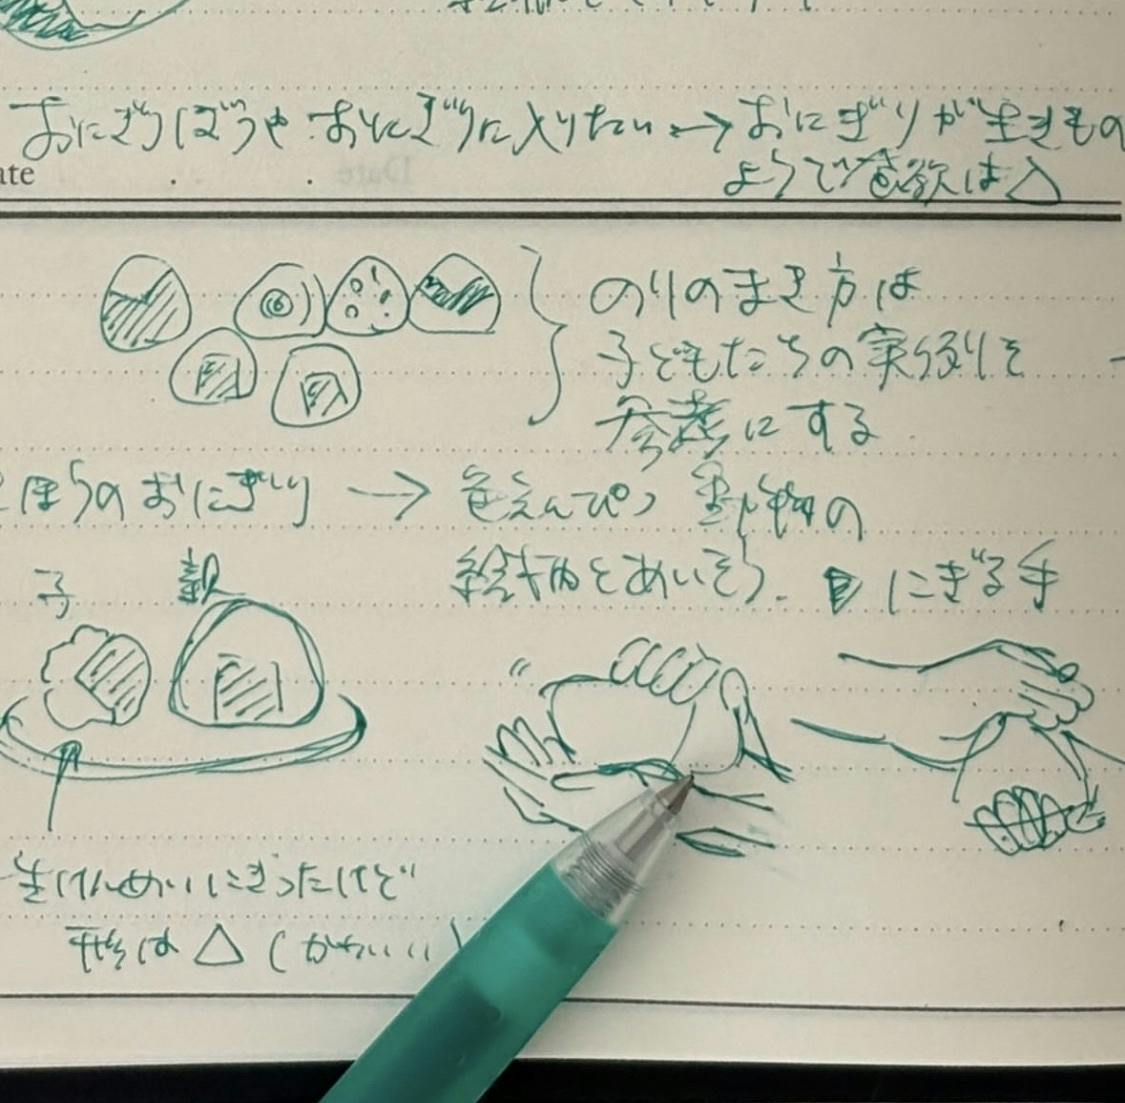 おにぎりぼうや おにぎりに入りたい → おにぎりが生きもの
ようで食欲は△
Date
のりのまき方は
子どもたちの実例を
参考にする
ほうのおにぎり → 色えんぴつ 動物の
絵柄とあいそう. にぎる手
子 親
生けんめいにぎったけど
形は △ (かわいい)